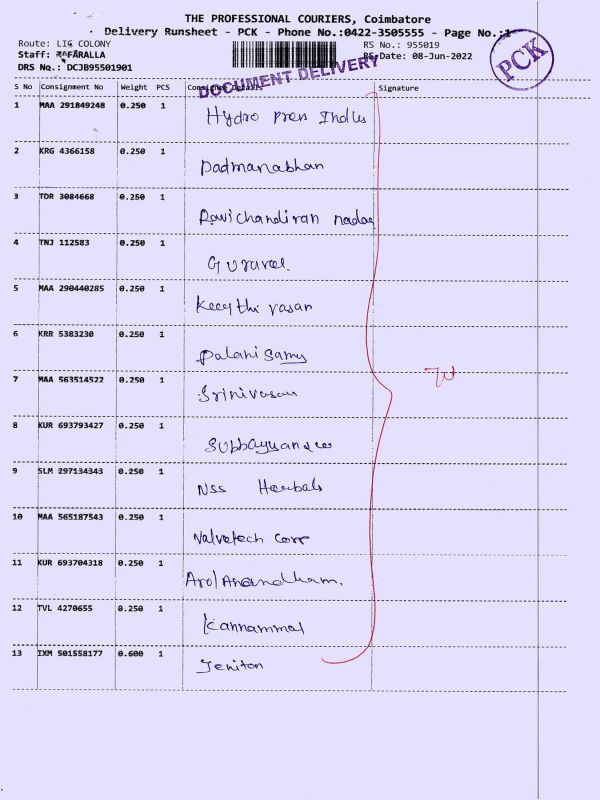 THE PROFESSIONAL COURIERS, Coimbatore
Delivery Runsheet - PCK - Phone No.:0422-3505555 - Page No.:1
Route: LIG COLONY
RS No.: 955019
Staff:
RS Date: 08-Jun-2022
DRS No.: DCJB95501901
DOCUMENT DELIVERY
PCK
S No Consignment No Weight PCS Consignee Details Signature
1 MAA 291849248 0.250 1 Hydro Press Indus
2 KRG 4366158 0.250 1 Padmanabhan
3 TDR 3084668 0.250 1 Ravichandiran nadar
4 TNJ 112583 0.250 1 Guravel.
5 MAA 290440285 0.250 1 Keeythi vasan
6 KRR 5383230 0.250 1 Palanisamy
7 MAA 563514522 0.250 1 Srinivasan
8 KUR 693793427 0.250 1
9 SLM 297134343 0.250 1 NSS Herbals
10 MAA 565187543 0.250 1 Valvetech Corp
11 KUR 693704318 0.250 1 Arol Anandham.
12 TVL 4270655 0.250 1 Kannammal
13 IXM 501558177 0.600 1 Jeniton